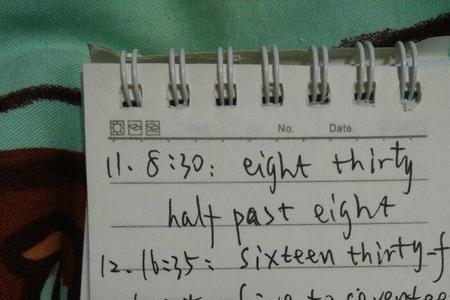 No. Date.
11. 8:30: eight thirty
half past eight
12. 16:35: sixteen thirty-f